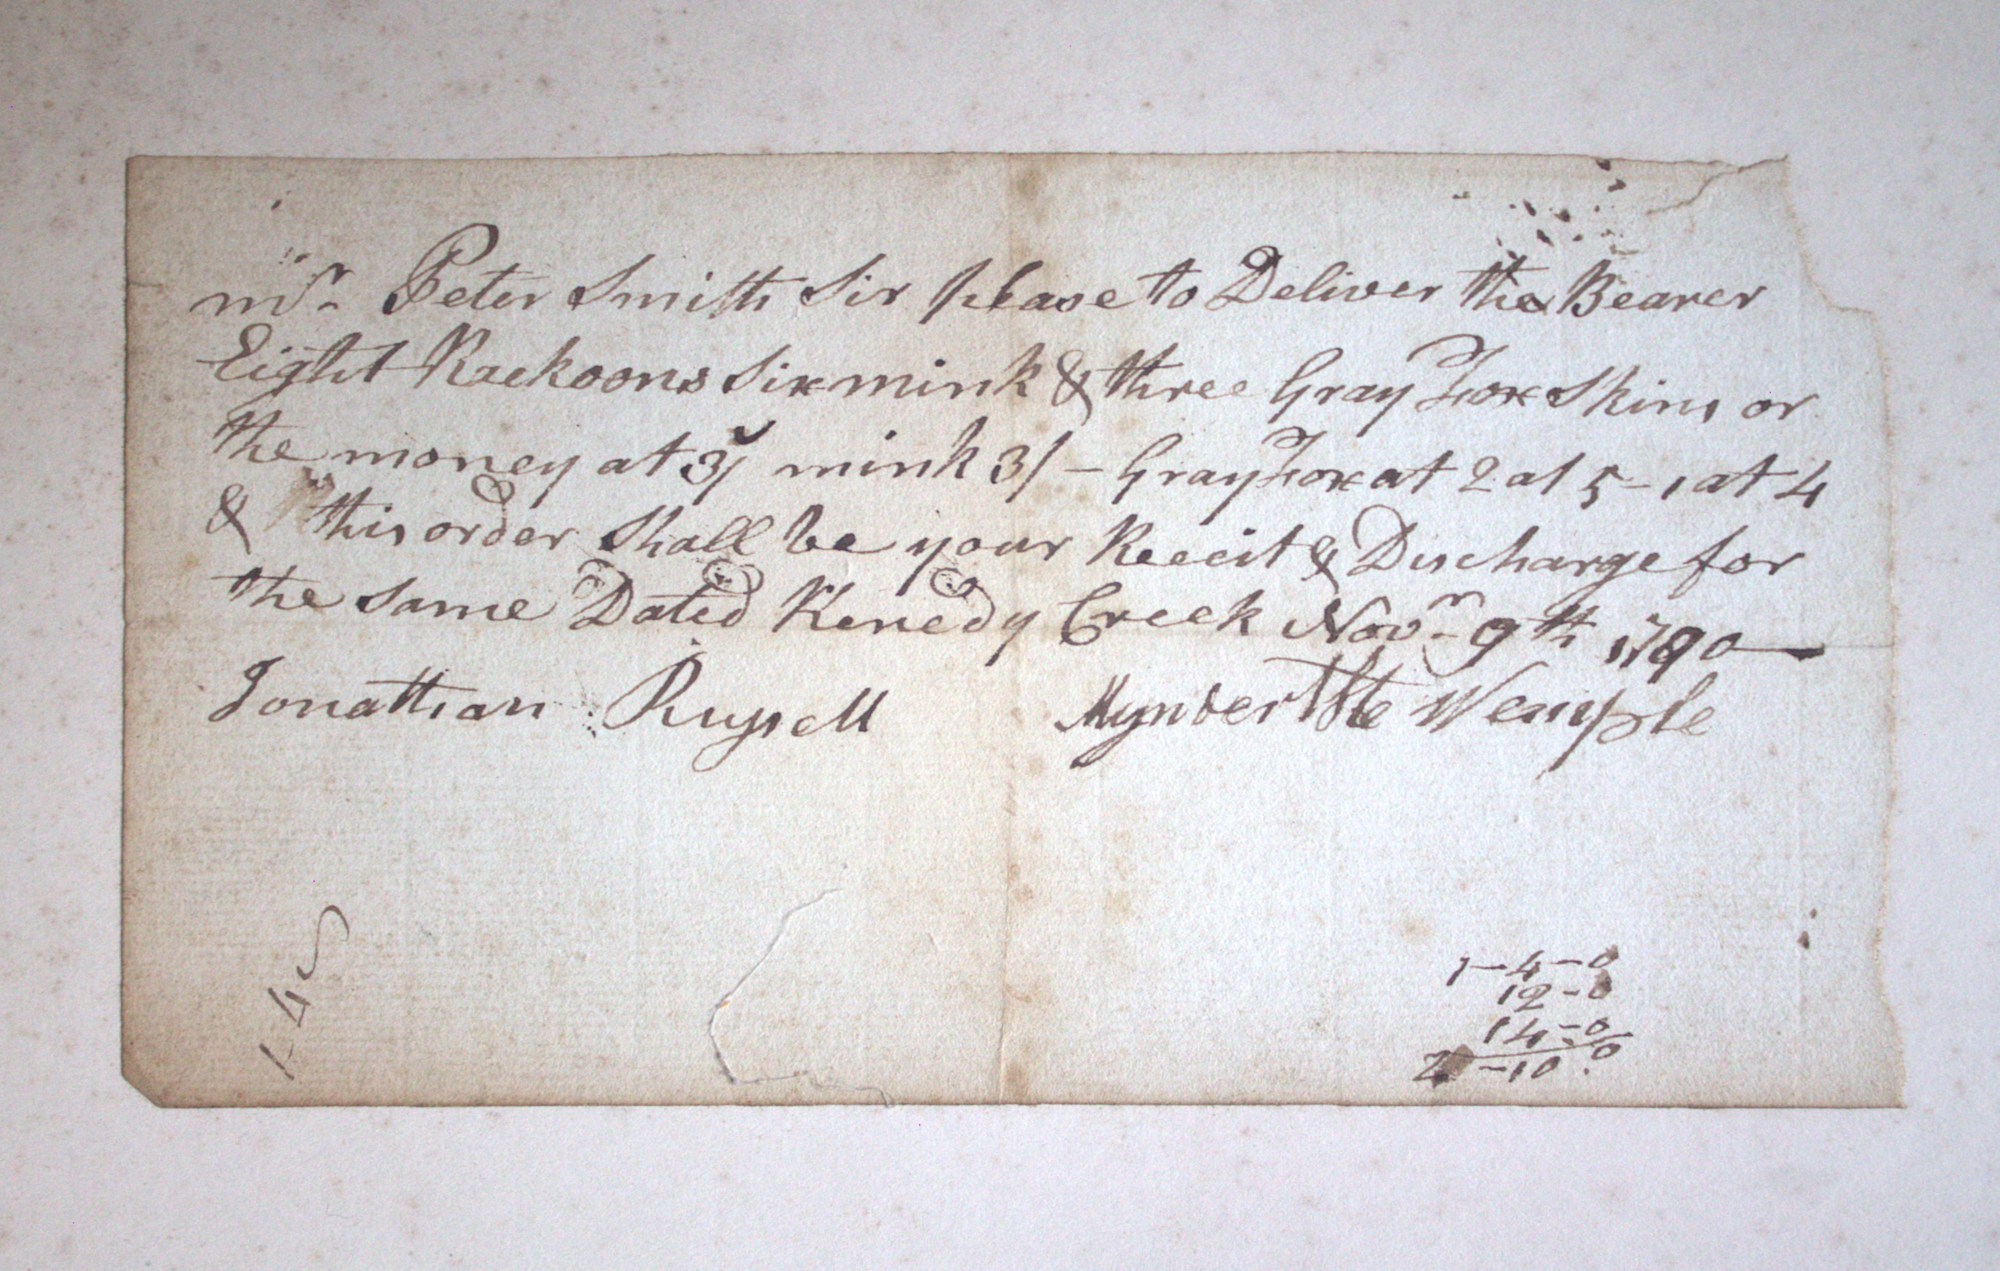 Mr. Peter Smith Sir please to Deliver the Bearer
Eight Rackoons Six mink & three Gray Fox Skins or
the money at 3/ mink 3/ – Gray Fox at 2 at 5 – 1 at 4
& this order Shall be your Receit & Discharge for
the same Dated Kenedy Creek Novr 9th 1790
Jonathan Russell Myndert Wemple
1–4–0
12–0
14–0
2–10.0